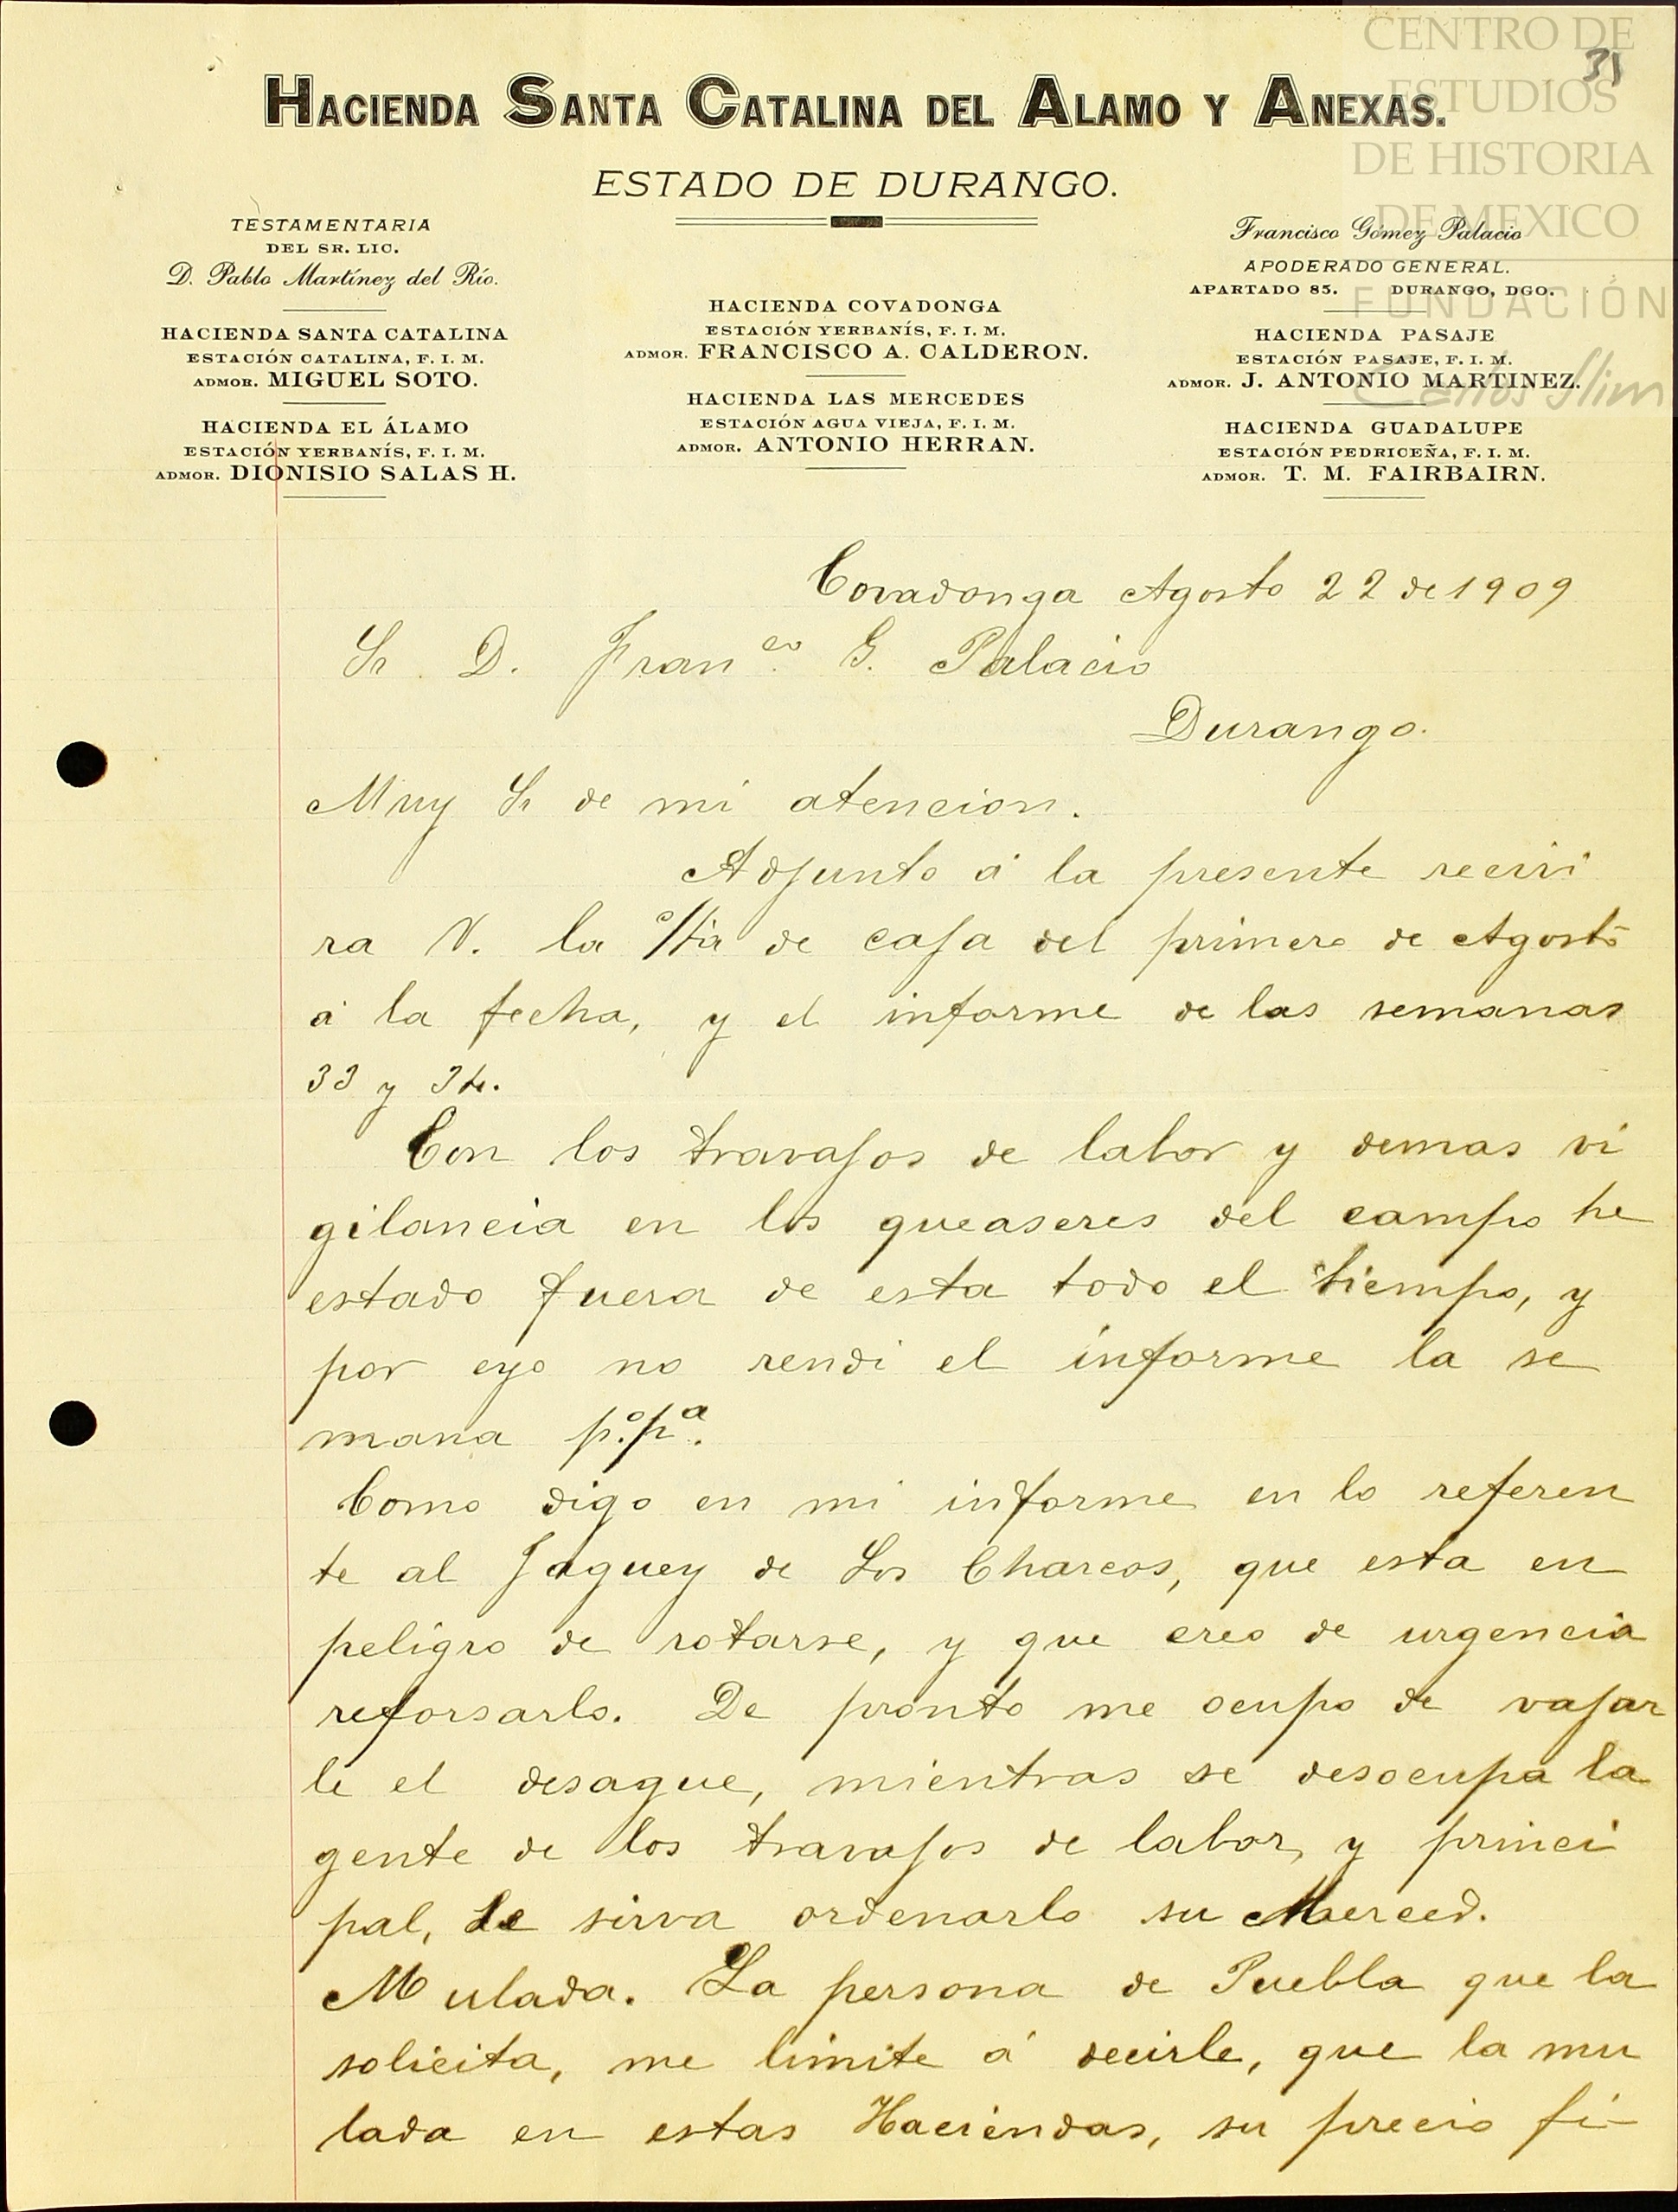 CENTRO DE
ESTUDIOS
DE HISTORIA
DE MEXICO
FUNDACIÓN
Carlos Slim
31
HACIENDA SANTA CATALINA DEL ALAMO Y ANEXAS.
ESTADO DE DURANGO.
TESTAMENTARIA
DEL SR. LIC.
D. Pablo Martínez del Río.
HACIENDA SANTA CATALINA
ESTACIÓN CATALINA, F. I. M.
ADMOR. MIGUEL SOTO.
HACIENDA EL ÁLAMO
ESTACIÓN YERBANÍS, F. I. M.
ADMOR. DIONISIO SALAS H.
HACIENDA COVADONGA
ESTACIÓN YERBANÍS, F. I. M.
ADMOR. FRANCISCO A. CALDERON.
HACIENDA LAS MERCEDES
ESTACIÓN AGUA VIEJA, F. I. M.
ADMOR. ANTONIO HERRAN.
Francisco Gómez Palacio
APODERADO GENERAL.
APARTADO 85. DURANGO, DGO.
HACIENDA PASAJE
ESTACIÓN PASAJE, F. I. M.
ADMOR. J. ANTONIO MARTINEZ.
HACIENDA GUADALUPE
ESTACIÓN PEDRICEÑA, F. I. M.
ADMOR. T. M. FAIRBAIRN.
Covadonga Agosto 22 de 1909
Sr. D. Franco. G. Palacio
Durango.
Muy Sr de mi atencion.
Adjunto á la presente recivi
ra V. la c/ta de caja del primero de Agosto
á la fecha, y el informe de las semanas
33 y 34.
Con los travajos de labor y demas vi
gilancia en los queaseres del campo he
estado fuera de esta todo el tiempo, y
por eyo no rendi el informe la se
mana p.o p.a
Como digo en mi informe en lo referen
te al Jaguey de Los Charcos, que esta en
peligro de rotarse, y que creo de urgencia
reforsarlo. De pronto me ocupo de vajar
le el desague, mientras se desocupa la
gente de los travajos de labor, y princi
pal, se sirva ordenarlo su Merced.
Mulada. La persona de Puebla que la
solicita, me limite á decirle, que la mu
lada en estas Haciendas, su precio fi-